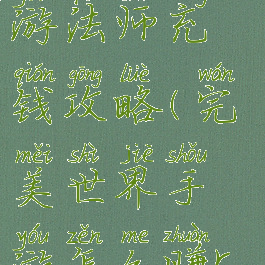 游法师充
qián gōng lüè wán
钱攻略(完
měi shì jiè shǒu
美世界手
yóu zěn me zhuàn
游怎么赚